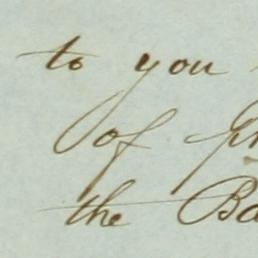 to you
of
the Ba